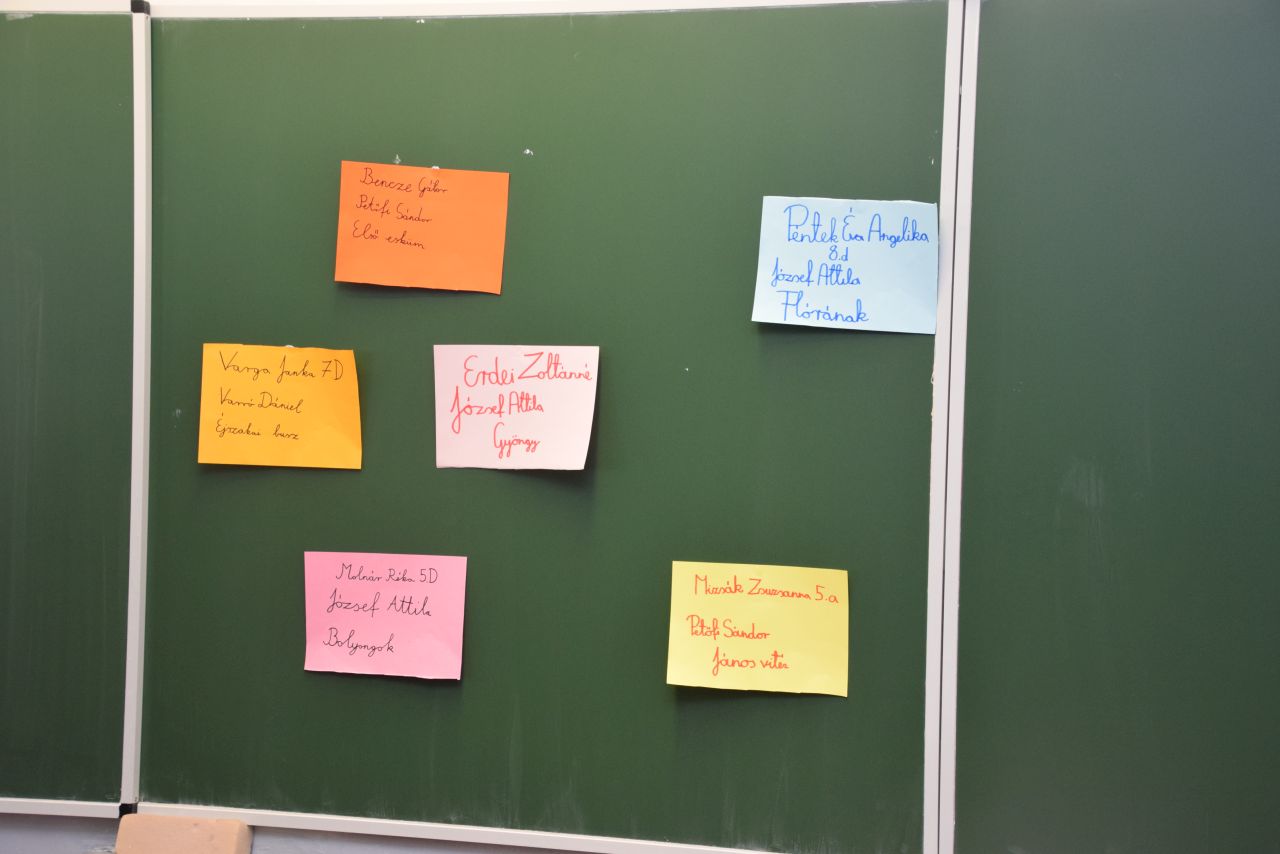 Bencze Gábor
Petőfi Sándor
Első esküm
Pentek Éva Angelika
8.d
József Attila
Flórának
Varga Janka 7D
Varró Dániel
Éjszakai busz
Erdei Zoltánné
József Attila
Gyöngy
Molnár Réka 5D
József Attila
Bolyongok
Mizsák Zsuzsanna 5.a
Petőfi Sándor
János vitéz